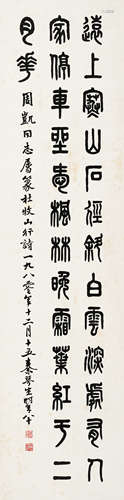 遠上寒山石徑斜白雲深處有人
家停車坐愛楓林晚霜葉紅于二
月華
周凱同志屬篆杜牧山行詩一九八零年十二月十五秦咢生時年八